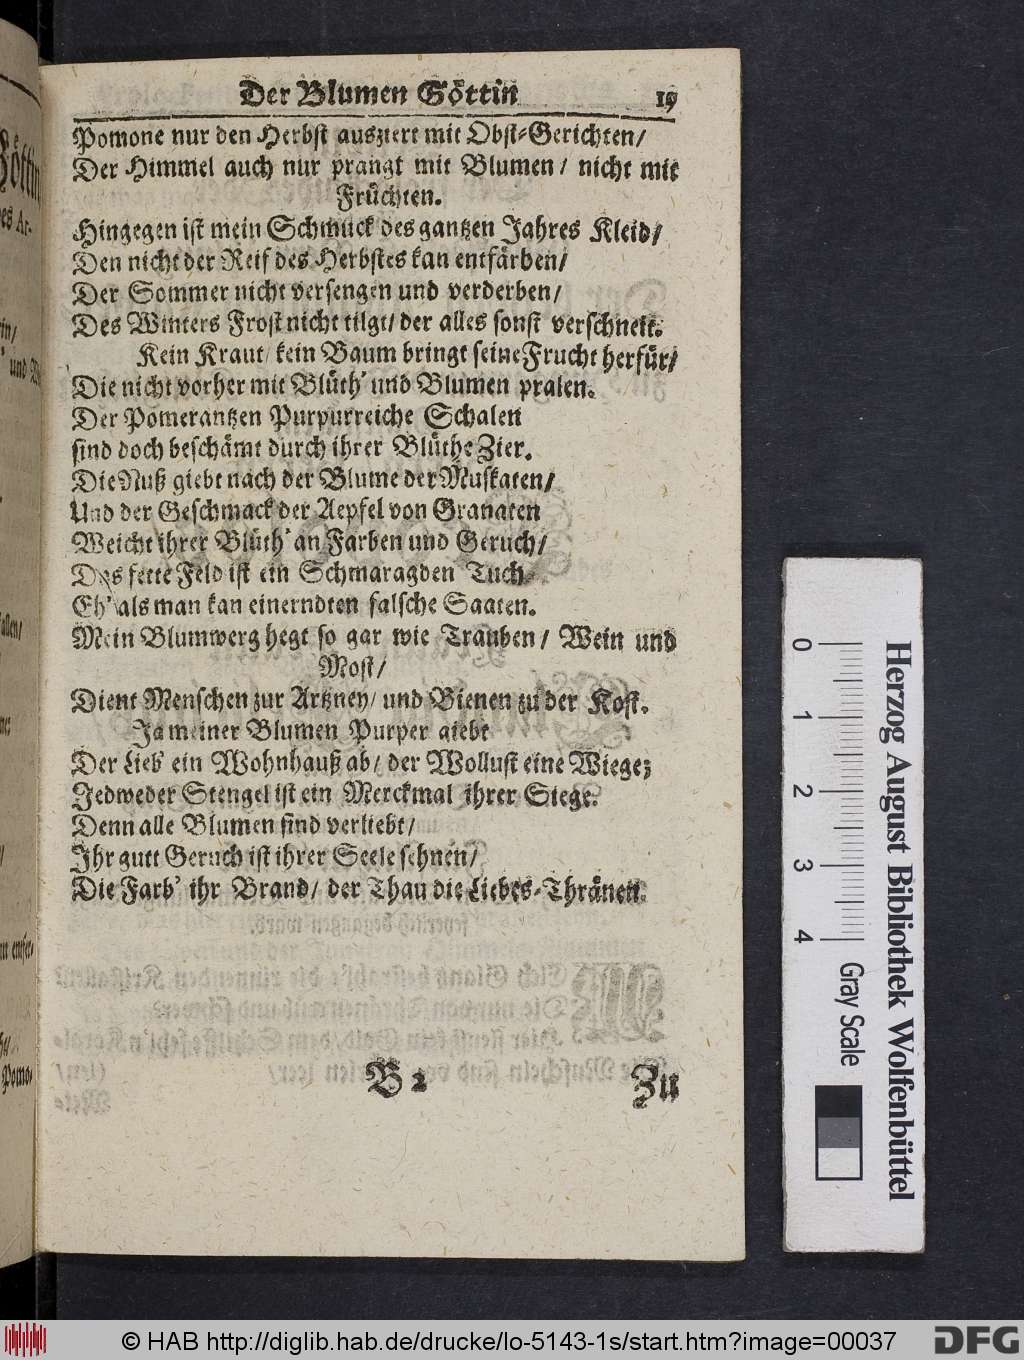 Der Blumen Göttin 19
Pomone nur den Herbst ausziert mit Obst-Gerichten/
Der Himmel auch nur prangt mit Blumen/ nicht mit
Früchten.
Hingegen ist mein Schmuck des gantzen Jahres Kleid/
Den nicht der Reif des Herbstes kan entfärben/
Der Sommer nicht versengen und verderben/
Des Winters Frost nicht tilgt/ der alles sonst verschneit.
Kein Kraut/ kein Baum bringt seine Frucht herfür/
Die nicht vorher mit Blüth' und Blumen pralen.
Der Pomerantzen Purpurreiche Schalen
sind doch beschämt durch ihrer Blüthe Zier.
Die Nuß giebt nach der Blume der Muskaten/
Und der Geschmack der Aepfel von Granaten
Weicht ihrer Blüth' an Farben und Geruch/
Das fette Feld ist ein Schmaragden Tuch
Eh' als man kan einerndten falsche Saaten.
Mein Blumwerg hegt so gar wie Trauben/ Wein und
Most/
Dient Menschen zur Artzney/ und Bienen zu der Kost.
Ja meiner Blumen Purper giebt
Der Lieb' ein Wohnhauß ab/ der Wollust eine Wiege;
Jedweder Stengel ist ein Merckmal ihrer Siege.
Denn alle Blumen sind verliebt/
Ihr gutt Geruch ist ihrer Seele sehnen/
Die Farb' ihr Brand/ der Thau die Liebes-Thränen.
B 2 Zu
0 1 2 3 4
Gray Scale
Herzog August Bibliothek Wolfenbüttel
© HAB http://diglib.hab.de/drucke/lo-5143-1s/start.htm?image=00037
DFG